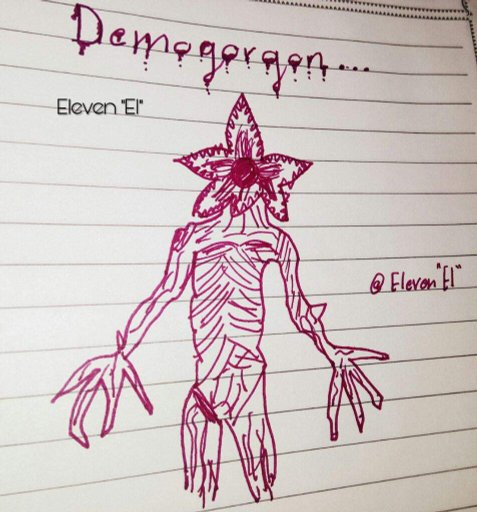 Demogorgon...
Eleven "El"
@ Eleven "El"